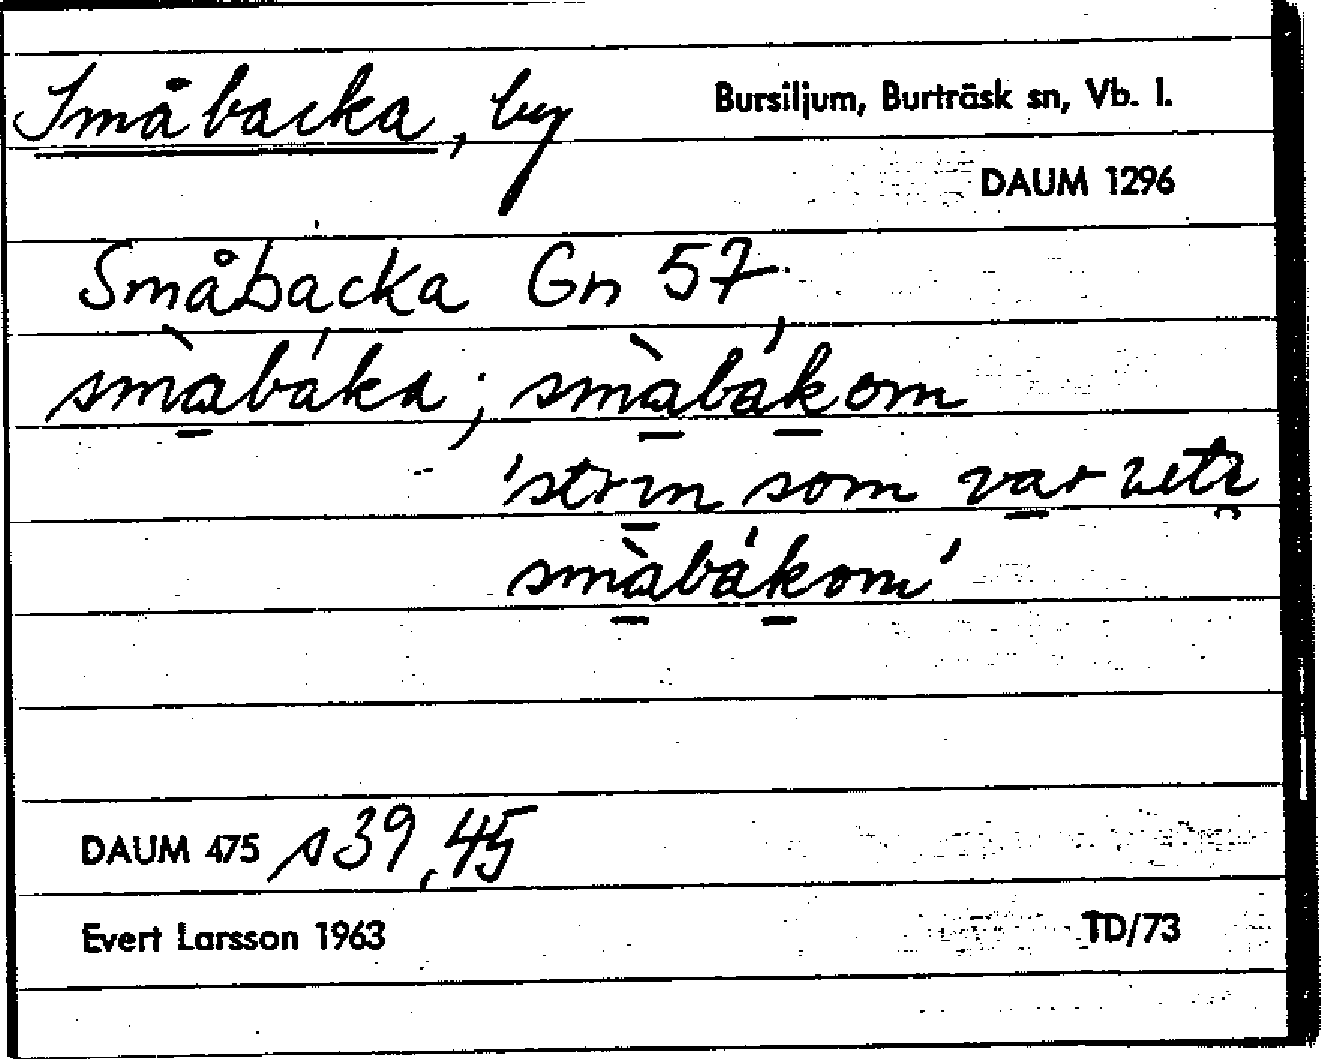 Småbacka, by
Bursiljum, Burträsk sn, Vb. l.
DAUM 1296
Småbacka Gn 57
smàbáka; smàbákom
'strın som var
smàbákom'
DAUM 475 s 39, 45
Evert Larsson 1963
TD/73